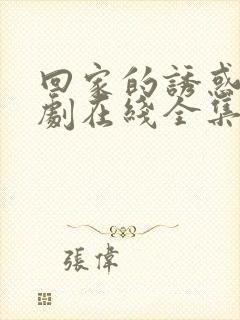 回家的誘惑
劇在綫全集
張偉